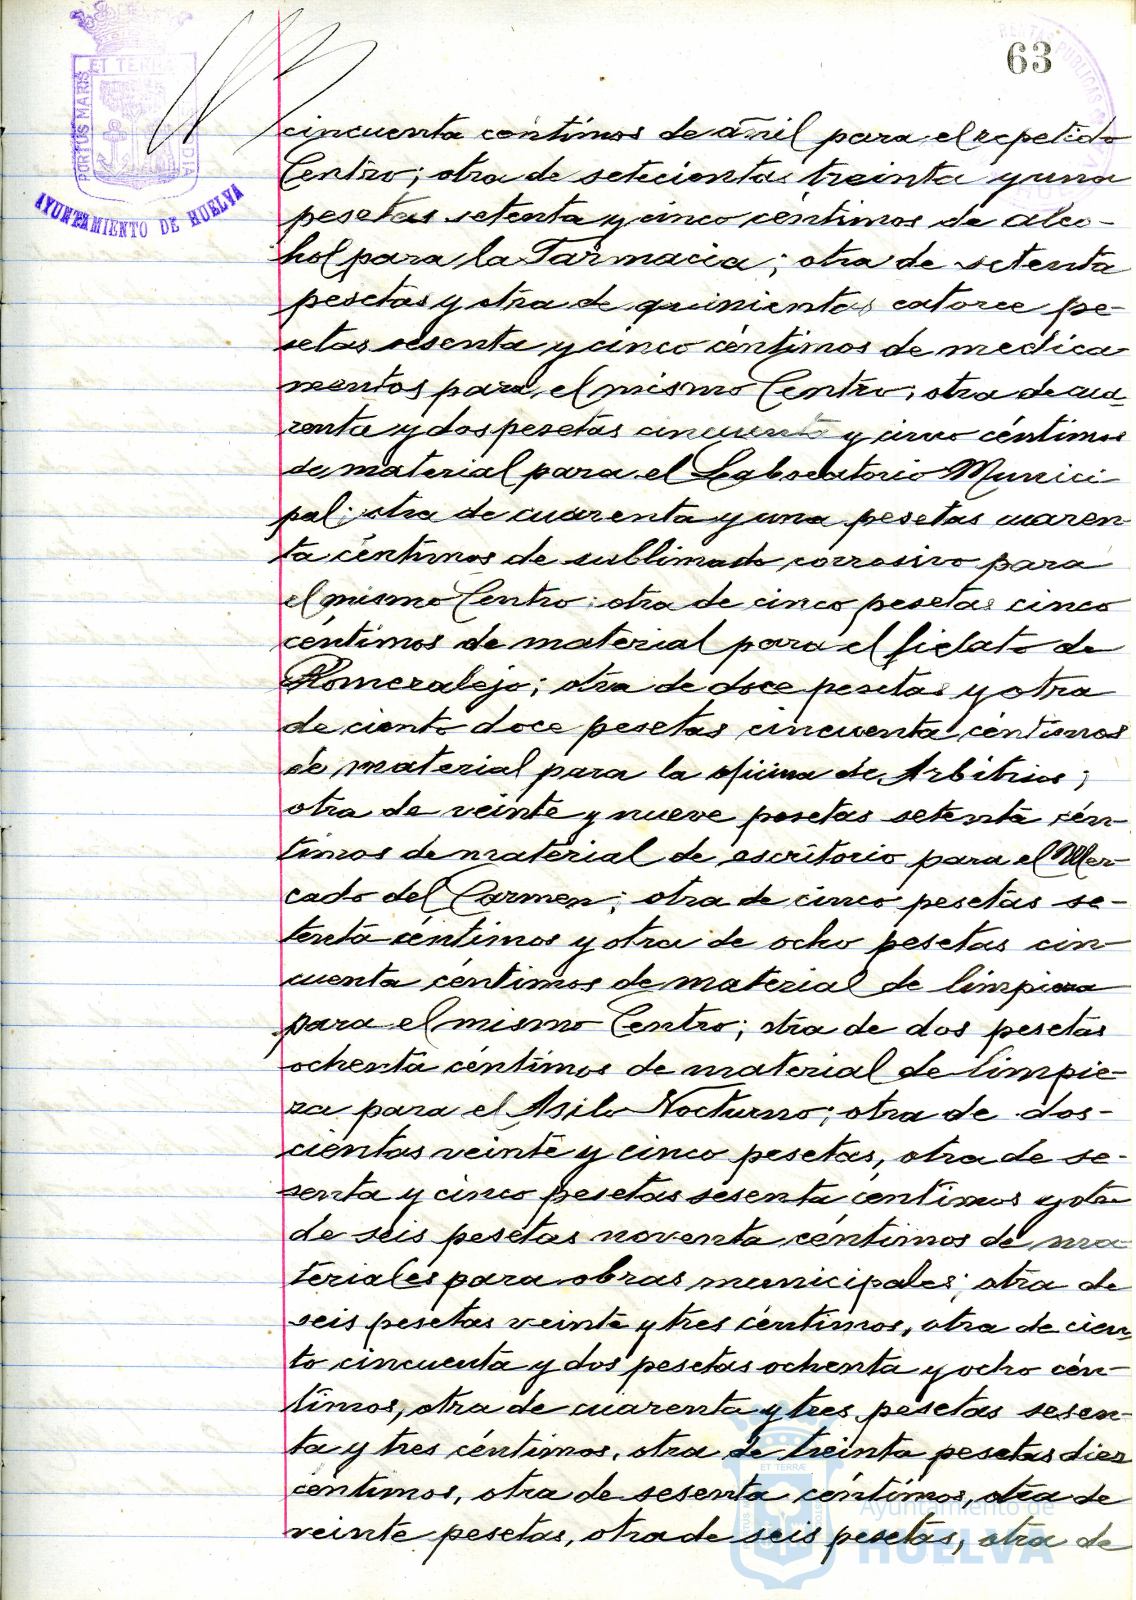 63
ET TERRÆ
PORTUS MARIS
AYUNTAMIENTO DE HUELVA
cincuenta céntimos de añil para el repetido
Centro; otra de setecientas treinta y una
pesetas setenta y cinco céntimos de alco-
hol para la Farmacia; otra de setenta
pesetas y otra de quinientas catorce pe-
setas sesenta y cinco céntimos de medica
mentos para el mismo Centro; otra de cua-
renta y dos pesetas cincuenta y cinco céntimos
de material para el Laboratorio Munici
pal; otra de cuarenta y una pesetas cuaren-
ta céntimos de sublimado corrosivo para
el mismo Centro; otra de cinco pesetas cinco
céntimos de material para el fielato de
Romeralejo; otra de doce pesetas y otra
de ciento doce pesetas cincuenta céntimos
de material para la oficina de Arbitrios;
otra de veinte y nueve pesetas setenta cén-
timos de material de escritorio para el Mer-
cado del Carmen; otra de cinco pesetas se-
tenta céntimos y otra de ocho pesetas cin-
cuenta céntimos de material de limpieza
para el mismo Centro; otra de dos pesetas
ochenta céntimos de material de limpie-
za para el Asilo Nocturno; otra de dos-
cientas veinte y cinco pesetas, otra de se-
senta y cinco pesetas sesenta céntimos y otra
de seis pesetas noventa céntimos de ma-
teriales para obras municipales; otra de
seis pesetas veinte y tres céntimos, otra de cien-
to cincuenta y dos pesetas ochenta y ocho cén-
timos, otra de cuarenta y tres pesetas sesen-
ta y tres céntimos, otra de treinta pesetas diez
céntimos, otra de sesenta céntimos, otra de
veinte pesetas, otra de seis pesetas, otra de
Ayuntamiento de
HUELVA